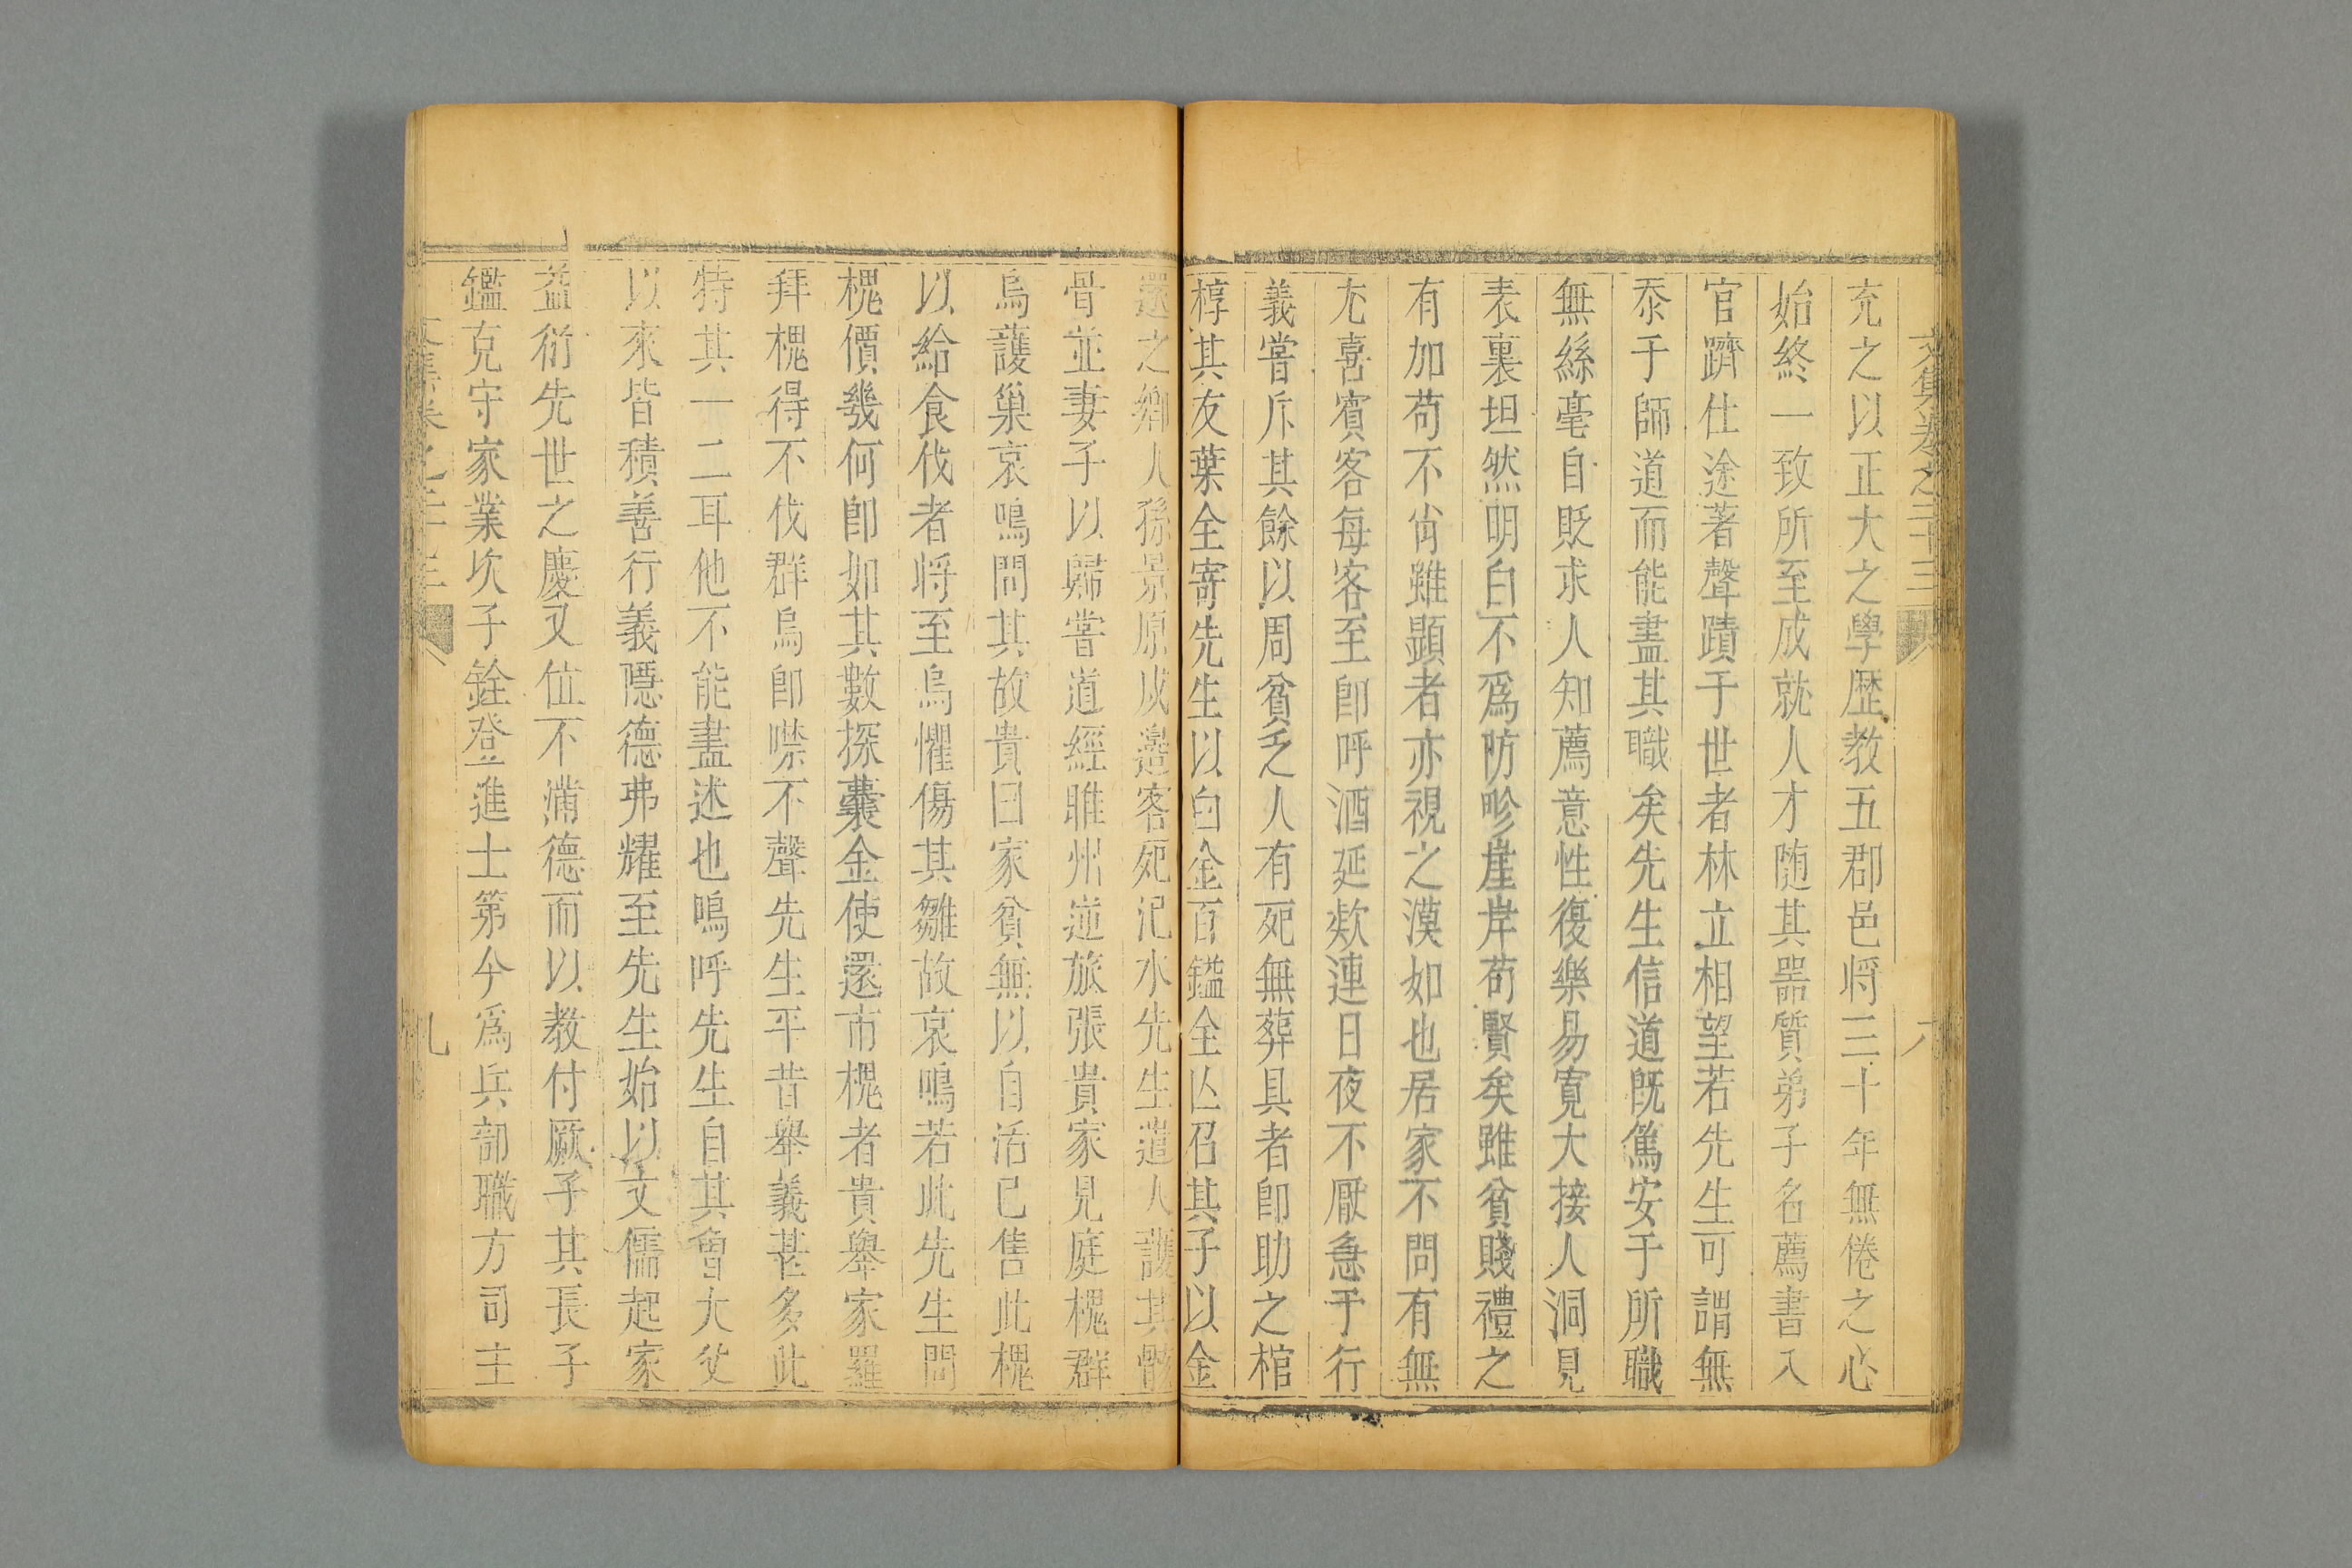 文集卷之二十三
充之以正大之學歷教五郡邑将三十年無倦之心
始終一致所至成就人才随其器質弟子名薦書入
官躋仕途著聲蹟于世者林立相望若先生可謂無
忝于師道而能盡其職矣先生信道既篤安于所職
無絲毫自貶求人知薦意性復樂易寬大接人洞見
表裏坦然明白不爲防畛崖岸苟賢矣雖貧賤禮之
有加苟不肖雖顯者亦視之漠如也居家不問有無
尤喜賓客每客至即呼酒延欵連日夜不厭急于行
義嘗斥其餘以周貧乏人有死無葬具者即助之棺
椁其友葉全寄先生以白金百鎰全亾召其子以金
還之鄉人孫景原戍邊客死汜水先生遣人護其骸
骨並妻子以歸嘗道經睢州逆旅張貴家見庭槐群
鳥護巢哀鳴問其故貴曰家貧無以自活已售此槐
以給食伐者将至鳥懼傷其雛故哀鳴若此先生問
槐價幾何即如其數探囊金使還市槐者貴舉家羅
拜槐得不伐群鳥即噤不聲先生平昔舉義甚多此
特其一二耳他不能盡述也嗚呼先生自其曾大父
以來皆積善行義隱德弗耀至先生始以文儒起家
益衍先世之慶又位不滿德而以教付厥子其長子
鑑克守家業次子銓登進士第今爲兵部職方司主
文集卷之二十三
九